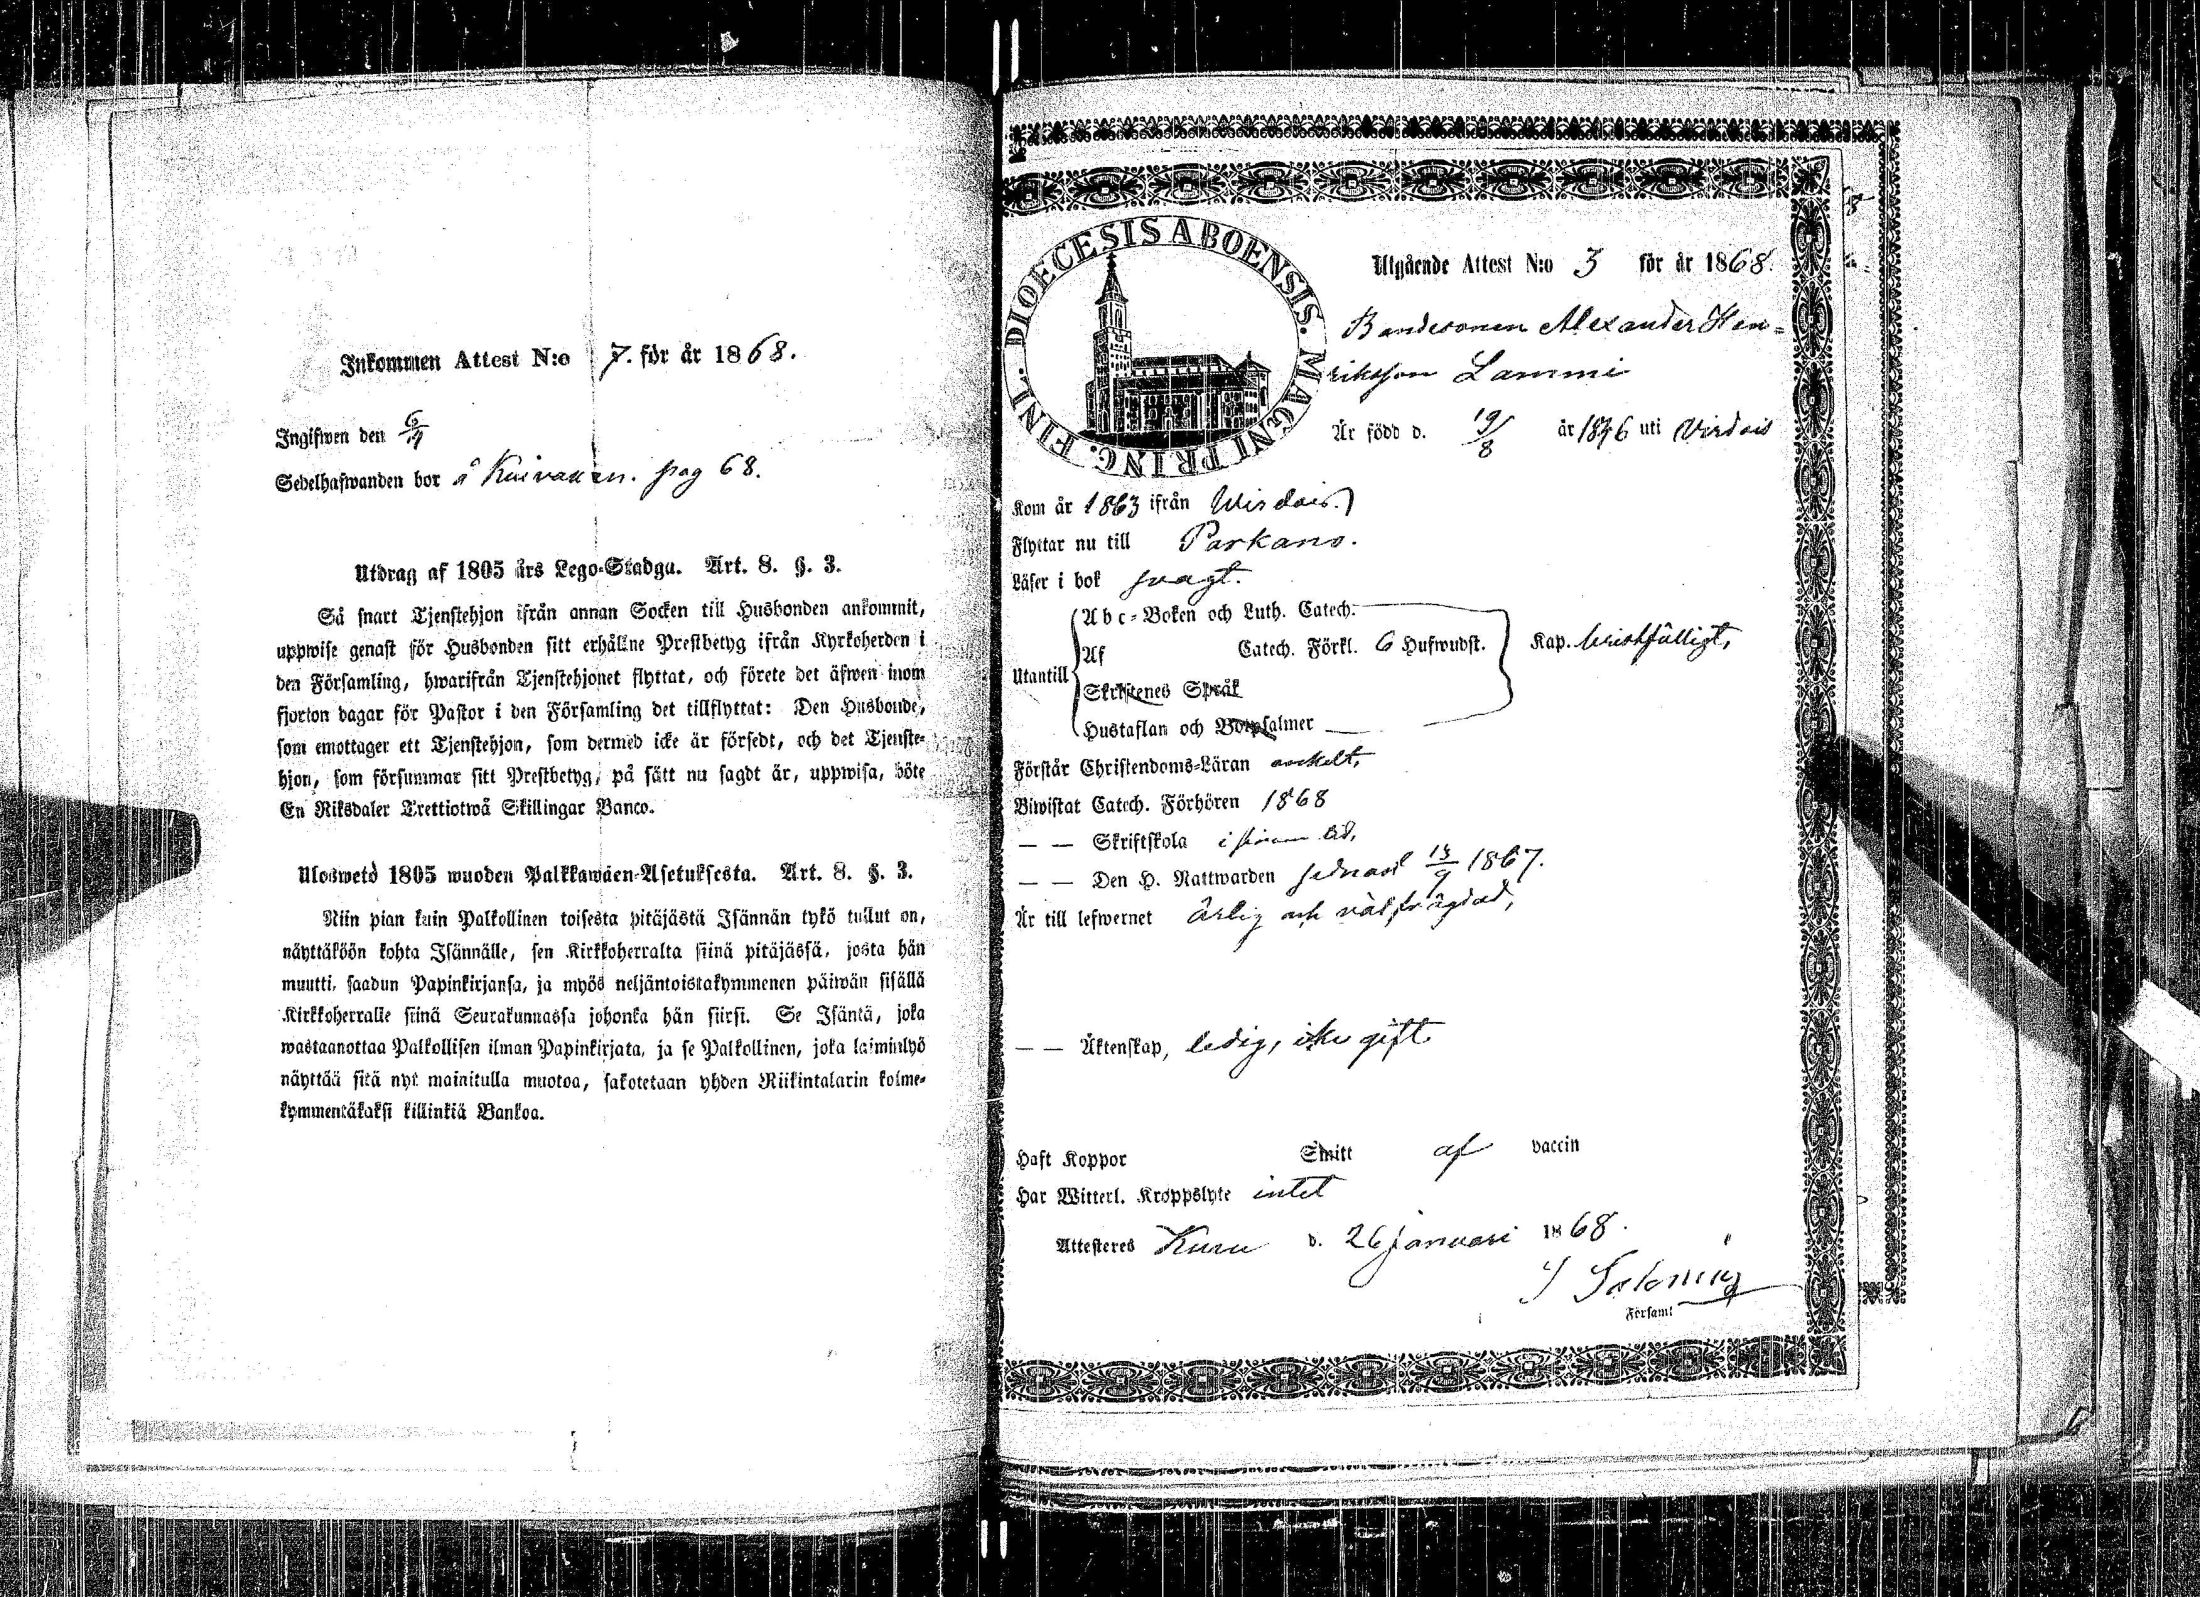 Inkommen Attest N:o 7. för år 1868.
Ingifwen den 6/4
Sedelhafwanden bor å Kuivanen. pag 68.
Utdrag af 1805 års Lego-Stadga. Art. 8. §. 3.
Så snart Tjenstehjon ifrån annan Socken till Husbonden ankommit,
uppwise genast för Husbonden sitt erhållne Prestbetyg ifrån Kyrkoherden i
den Församling, hwarifrån Tjenstehjonet flyttat, och förete det äfwen inom
fjorton dagar för Pastor i den Församling det tillflyttat: Den Husbonde,
som emottager ett Tjenstehjon, som dermed icke är försedt, och det Tjenste-
hjon, som försummar sitt Prestbetyg, på sätt nu sagdt är, uppwisa, böte
En Riksdaler Trettiotwå Skillingar Banco.
Uloswetö 1805 wuoden Palkkawäen-Asetuksesta. Art. 8. §. 3.
Niin pian kuin Palkollinen toisesta pitäjästä Isännän tykö tullut on,
näyttäköön kohta Isännälle, sen Kirkkoherralta siinä pitäjässä, josta hän
muutti, saadun Papinkirjansa, ja myös neljäntoistakymmenen päiwän sisällä
Kirkkoherralle siinä Seurakunnassa johonka hän siirsi. Se Isäntä, joka
wastaanottaa Palkollisen ilman Papinkirjata, ja se Palkollinen, joka laiminlyö
näyttää sitä nyt mainitulla muotoa, sakotetaan yhden Riikintalarin kolme-
kymmentäkaksi killinkiä Bankoa.
DIOECESIS ABOENSIS. MAGNI PRINC. FINL.
Utgående Attest N:o 3 för år 1868.
Bondesonen Alexander Hen=
riksson Lammi
Är född d. 19/8 år 1846 uti Virdois
Kom år 1863 ifrån Wirdois.
Flyttar nu till Parkano.
Läser i bok svagt.
Abc-Boken och Luth. Catech.
Utantill Af Catech. Förkl. 6 Hufwudst. Kap. bristfälligt,
Skriftenes Språk
Hustaflan och Botpsalmer
Förstår Christendoms-Läran enkelt,
Biwistat Catech. Förhören 1868
— — Skriftskola i sinom tid,
— — Den H. Nattwarden sednast 15/9 1867.
Är till lefwernet ärlig och välfrägdad,
— — Äktenskap, ledig, icke gift.
Haft Koppor Smitt af vaccin
Har Witterl. Kroppslyte intet
Attesteras Kuru d. 26 januari 1868.
Församl